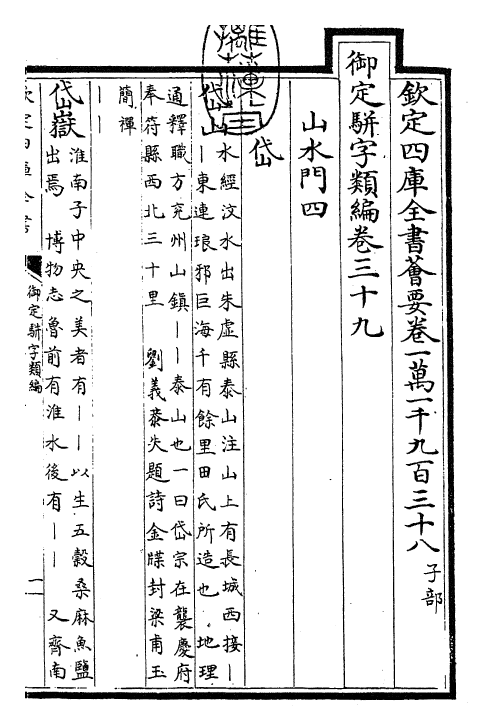 欽定四庫全書薈要卷一萬一千九百三十八 子部
御定駢字類編卷三十九
山水門四
岱
岱山 水經汶水出朱虛縣泰山注山上有長城西接丨
丨東連琅邪巨海千有餘里田氏所造也 地理
通釋職方兖州山鎮丨丨泰山也一曰岱宗在襲慶府
奉符縣西北三十里 劉義恭失題詩金牒封梁甫玉
簡禪
丨丨
岱嶽 淮南子中央之美者有丨丨以生五穀桑麻魚鹽
出焉 博物志魯前有淮水後有丨丨 又齊南
御定駢字類編